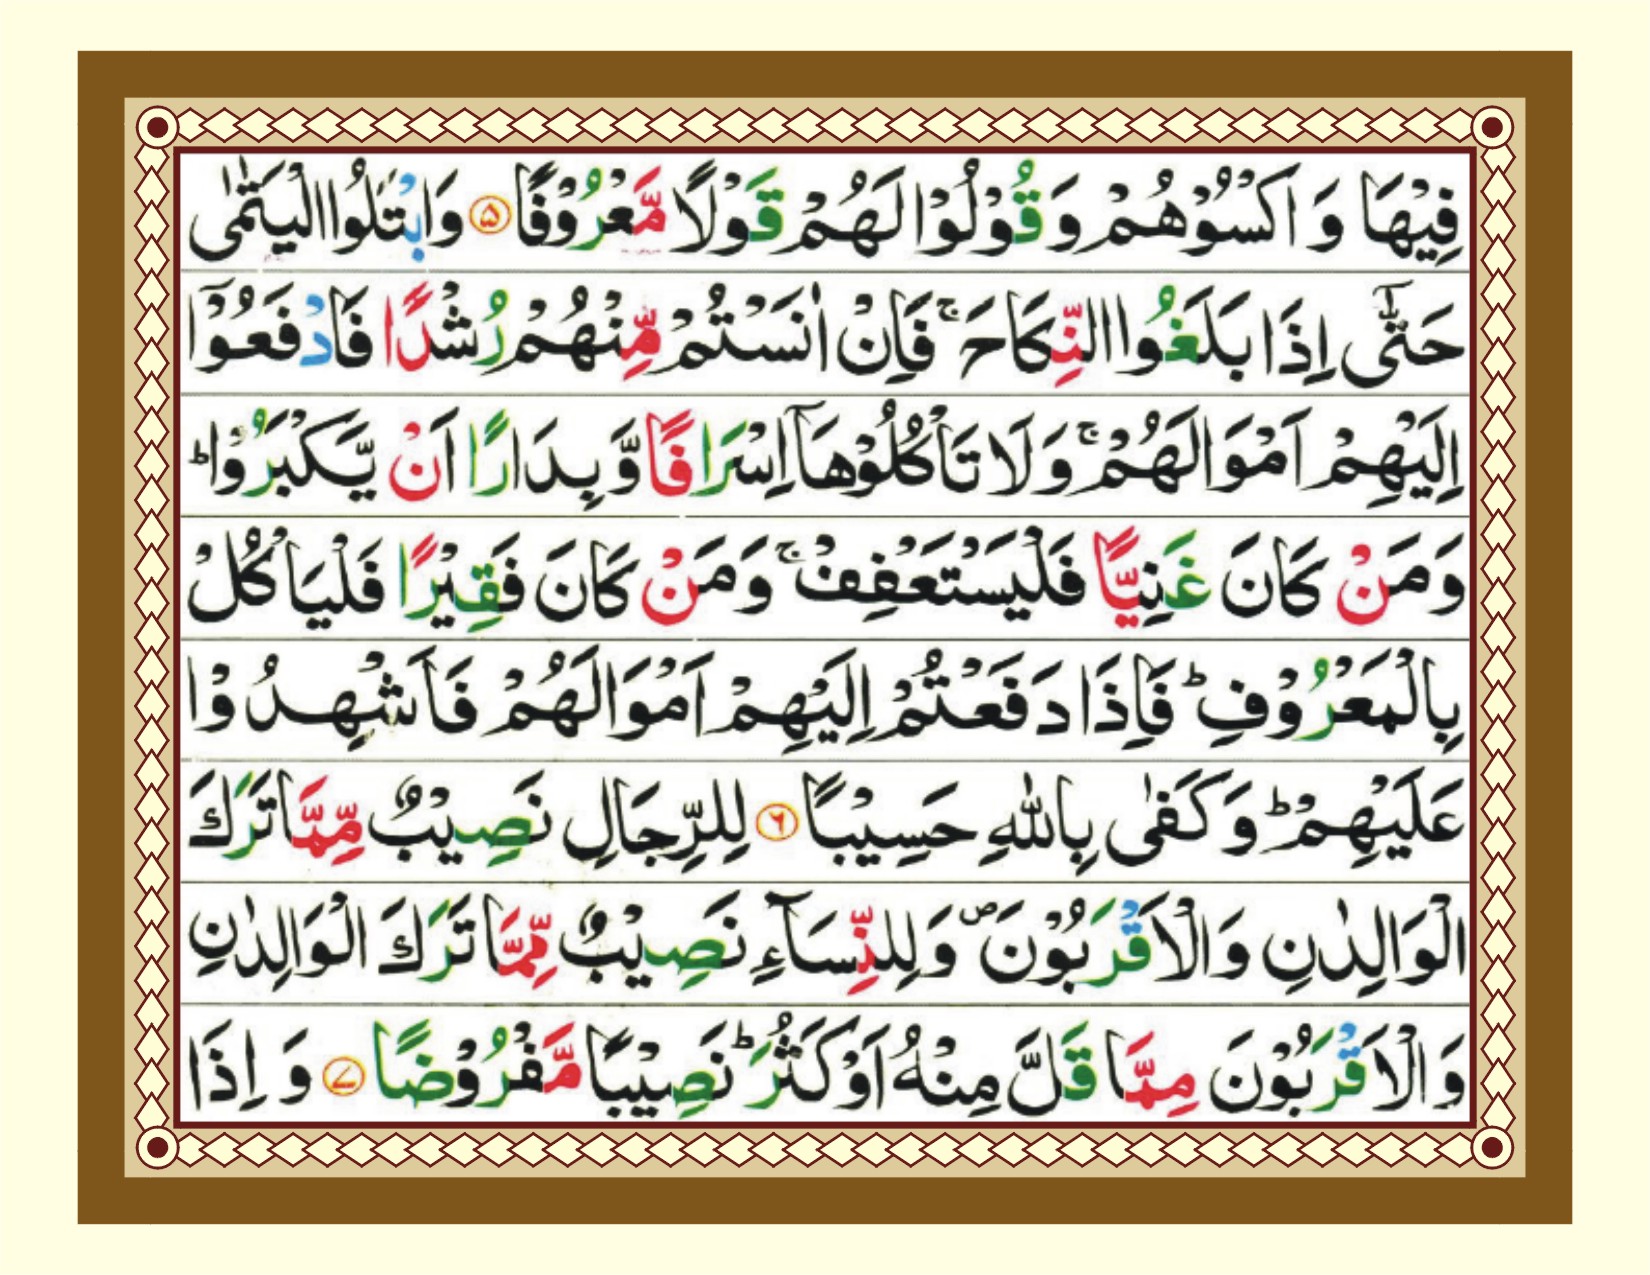 فِيْهَا وَ اكْسُوْهُمْ وَ قُوْلُوْا لَهُمْ قَوْلًا مَّعْرُوْفًا ۵ وَابْتَلُوا الْيَتٰمٰى
حَتّٰٓى اِذَا بَلَغُوا النِّكَاحَ ۚ فَاِنْ اٰنَسْتُمْ مِّنْهُمْ رُشْدًا فَادْفَعُوْٓا
اِلَيْهِمْ اَمْوَالَهُمْ ۚ وَلَا تَاْكُلُوْهَآ اِسْرَافًا وَّ بِدَارًا اَنْ يَّكْبَرُوْا ؕ
وَمَنْ كَانَ غَنِيًّا فَلْيَسْتَعْفِفْ ۚ وَمَنْ كَانَ فَقِيْرًا فَلْيَاْكُلْ
بِالْمَعْرُوْفِ ؕ فَاِذَا دَفَعْتُمْ اِلَيْهِمْ اَمْوَالَهُمْ فَاَشْهِدُوْا
عَلَيْهِمْ ؕ وَكَفٰى بِاللّٰهِ حَسِيْبًا ۶ لِلرِّجَالِ نَصِيْبٌ مِّمَّا تَرَكَ
الْوَالِدٰنِ وَالْاَقْرَبُوْنَ ۪ وَلِلنِّسَآءِ نَصِيْبٌ مِّمَّا تَرَكَ الْوَالِدٰنِ
وَالْاَقْرَبُوْنَ مِمَّا قَلَّ مِنْهُ اَوْ كَثُرَ ؕ نَصِيْبًا مَّفْرُوْضًا ۷ وَ اِذَا